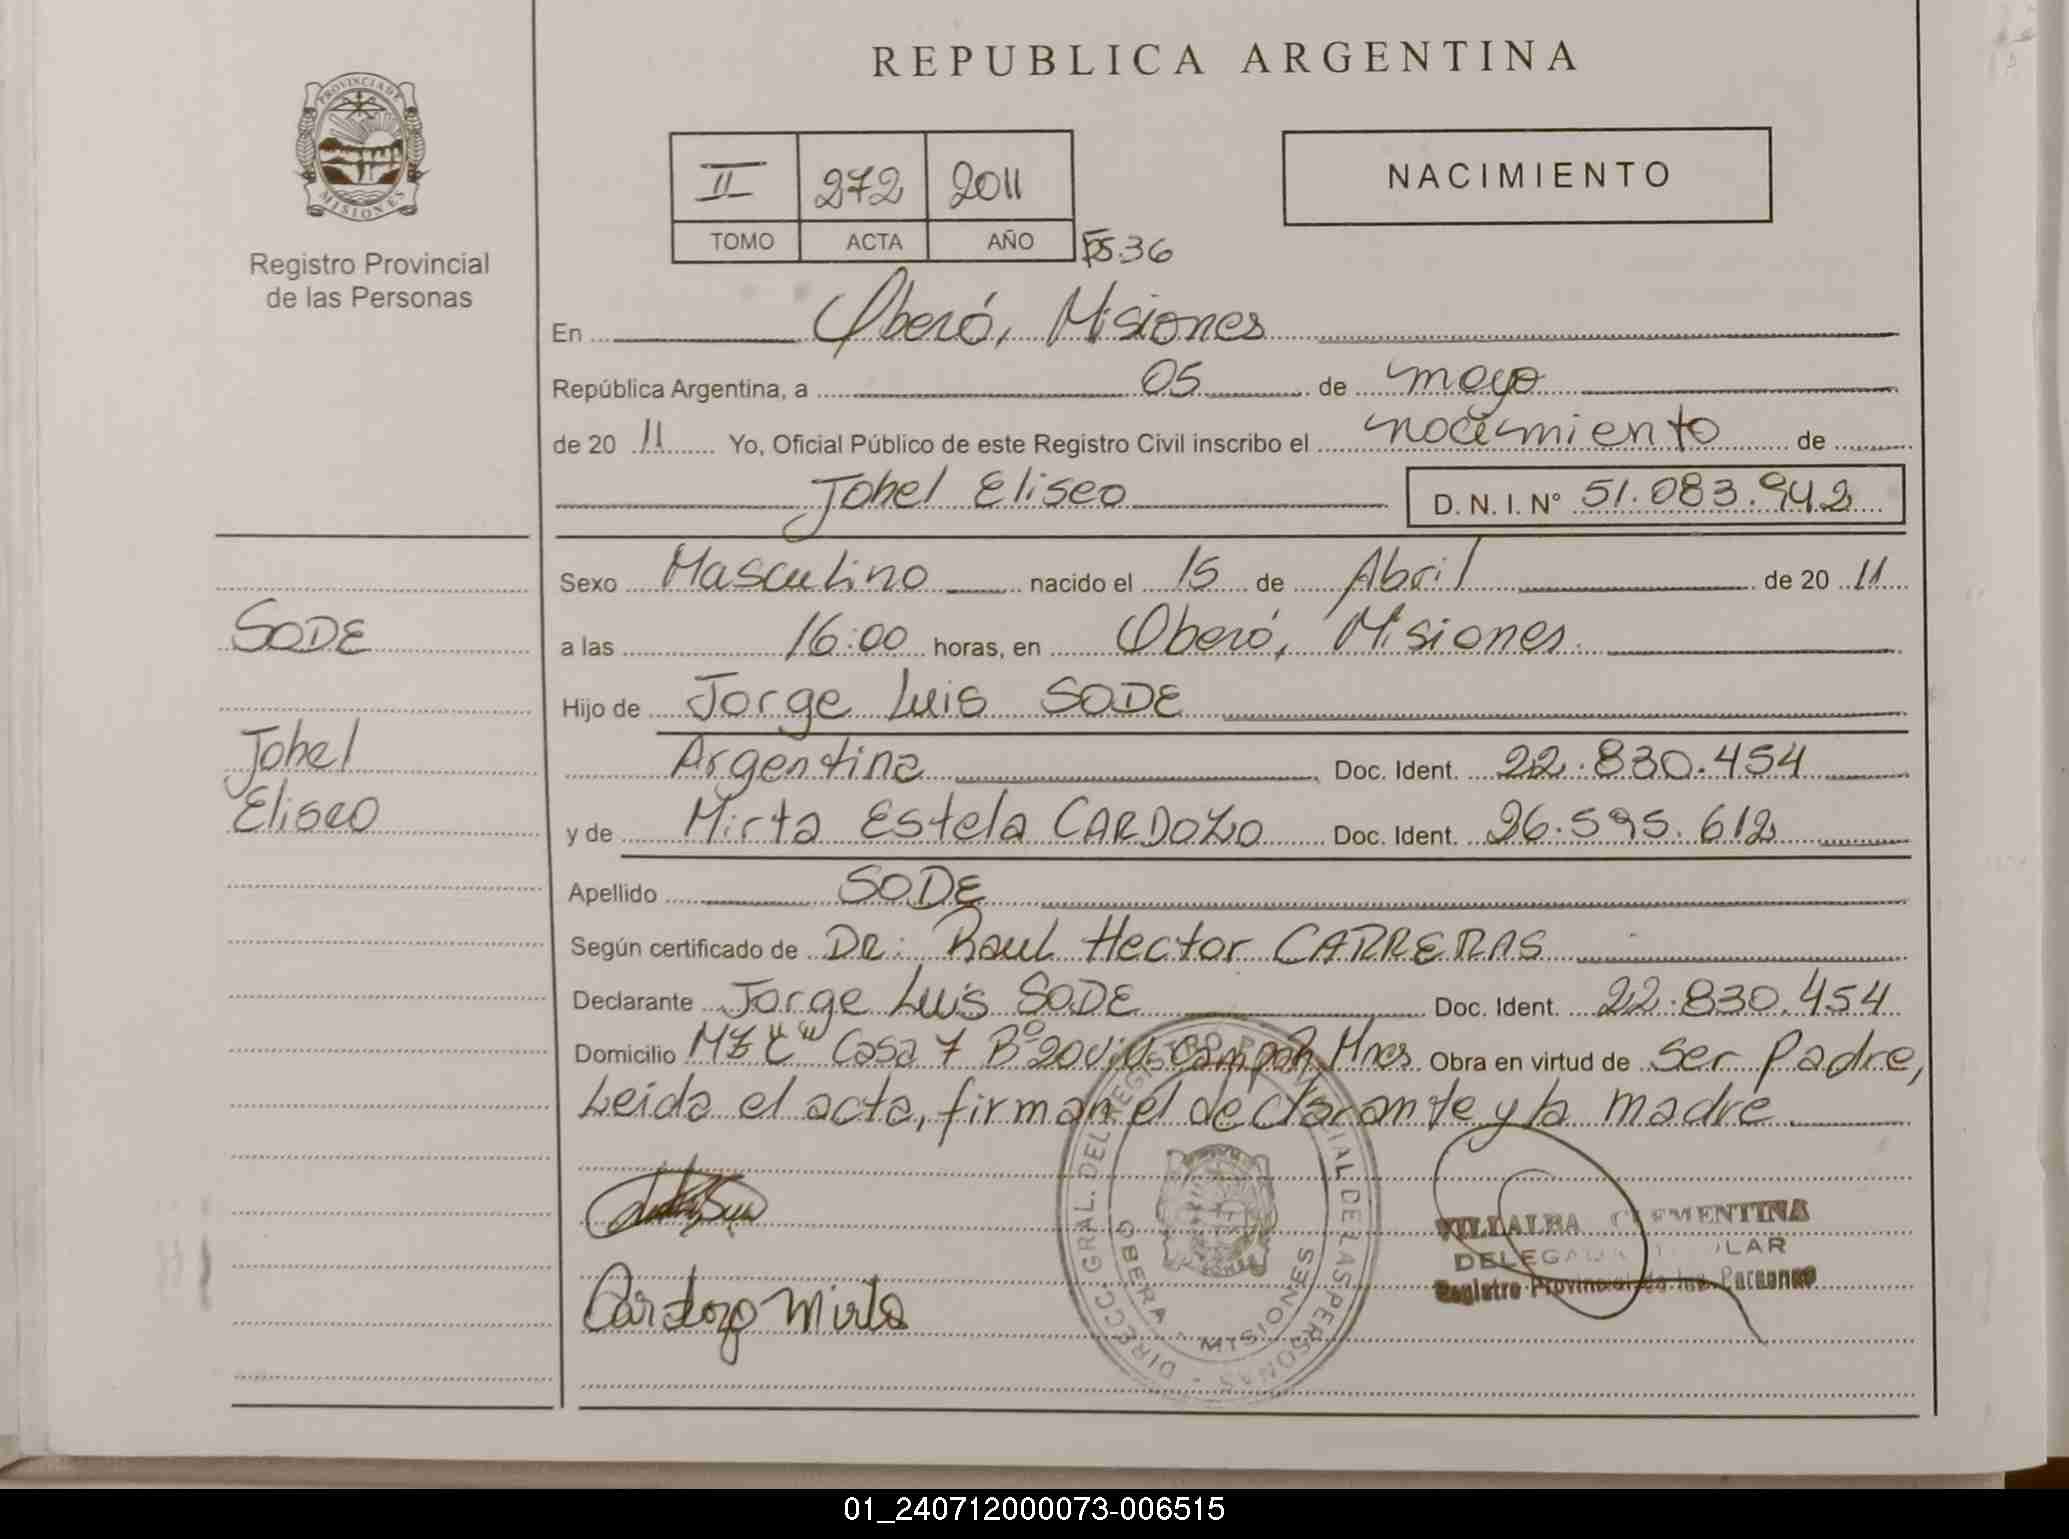 REPUBLICA ARGENTINA
PROVINCIA DE
MISIONES
Registro Provincial
de las Personas
II 272 2011
TOMO ACTA AÑO
Fs. 36
NACIMIENTO
En Oberá, Misiones
República Argentina, a 05 de mayo
de 20 11 Yo, Oficial Público de este Registro Civil inscribo el nacimiento de
Johel Eliseo D. N. I. N° 51.083.942
Sexo Masculino nacido el 15 de Abril de 20 11
SODE
a las 16:00 horas, en Oberá, Misiones.
Hijo de Jorge Luis SODE
Johel
Argentina Doc. Ident. 22.830.454
Eliseo
y de Mirta Estela CARDOZO Doc. Ident. 26.595.612
Apellido SODE
Según certificado de DR: Raul Hector CARRERAS
Declarante Jorge Luis SODE Doc. Ident. 22.830.454
Domicilio MZ "E" Casa 7 B° 20 Viv. Mnes Obra en virtud de Ser Padre,
Leida el acta, firman el declarante y la madre
DIRECC. GRAL. DEL REGISTRO PROVINCIAL DE LAS PERSONAS
OBERA - MISIONES
VILLALBA CLEMENTINA
Registro Provincial de las Personas
Cardozo Mirta
01_240712000073-006515